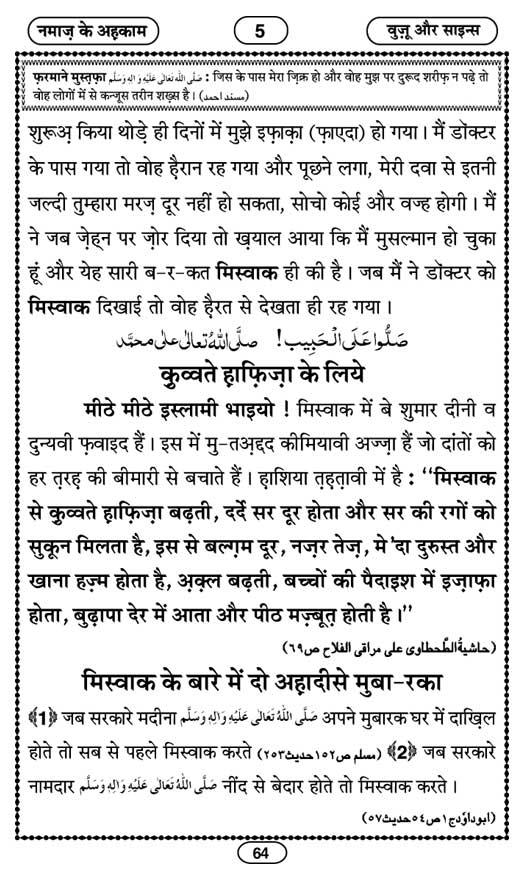 नमाज़ के अह़काम
5
वुज़ू और साइन्स
फ़रमाने मुस्त़फ़ा صَلَّى اللّٰهُ تَعَالٰى عَلَيْهِ وَاٰلِهٖ وَسَلَّم : जिस के पास मेरा ज़िक्र हो और वोह मुझ पर दुरूद शरीफ़ न पढ़े तो
वोह लोगों में से कन्जूस तरीन शख़्स है। (مسند احمد)
शुरूअ़ किया थोड़े ही दिनों में मुझे इफ़ाक़ा (फ़ाएदा) हो गया। मैं डॉक्टर
के पास गया तो वोह हैरान रह गया और पूछने लगा, मेरी दवा से इतनी
जल्दी तुम्हारा मरज़ दूर नहीं हो सकता, सोचो कोई और वज्ह होगी। मैं
ने जब ज़ेह्न पर ज़ोर दिया तो ख़याल आया कि मैं मुसल्मान हो चुका
हूं और येह सारी ब-र-कत मिस्वाक ही की है। जब मैं ने डॉक्टर को
मिस्वाक दिखाई तो वोह हैरत से देखता ही रह गया।
صَلُّوا عَلَى الْحَبِيب! صلَّى اللهُ تعالٰى على محمَّد
क़ुव्वते ह़ाफ़िज़ा के लिये
मीठे मीठे इस्लामी भाइयो ! मिस्वाक में बे शुमार दीनी व
दुन्यवी फ़वाइद हैं। इस में मु-तअ़द्दद कीमियावी अज्ज़ा हैं जो दांतों को
हर त़रह़ की बीमारी से बचाते हैं। ह़ाशिया त़ह़त़ावी में है : ‘‘मिस्वाक
से क़ुव्वते ह़ाफ़िज़ा बढ़ती, दर्दे सर दूर होता और सर की रगों को
सुकून मिलता है, इस से बल्ग़म दूर, नज़र तेज़, मे'दा दुरुस्त और
खाना हज़्म होता है, अ़क़्ल बढ़ती, बच्चों की पैदाइश में इज़ाफ़ा
होता, बुढ़ापा देर में आता और पीठ मज़्बूत़ होती है।’’
(حاشية الطحطاوى على مراقى الفلاح ص٦٩)
मिस्वाक के बारे में दो अह़ादीसे मुबा-रका
﴾1﴿ जब सरकारे मदीना صَلَّى اللّٰهُ تَعَالٰى عَلَيْهِ وَاٰلِهٖ وَسَلَّم अपने मुबारक घर में दाख़िल
होते तो सब से पहले मिस्वाक करते (مسلم ص١٥٢حديث٢٥٣) ﴾2﴿ जब सरकारे
नामदार صَلَّى اللّٰهُ تَعَالٰى عَلَيْهِ وَاٰلِهٖ وَسَلَّم नींद से बेदार होते तो मिस्वाक करते।
(ابوداؤدج١ص٥٤حديث٥٧)
64